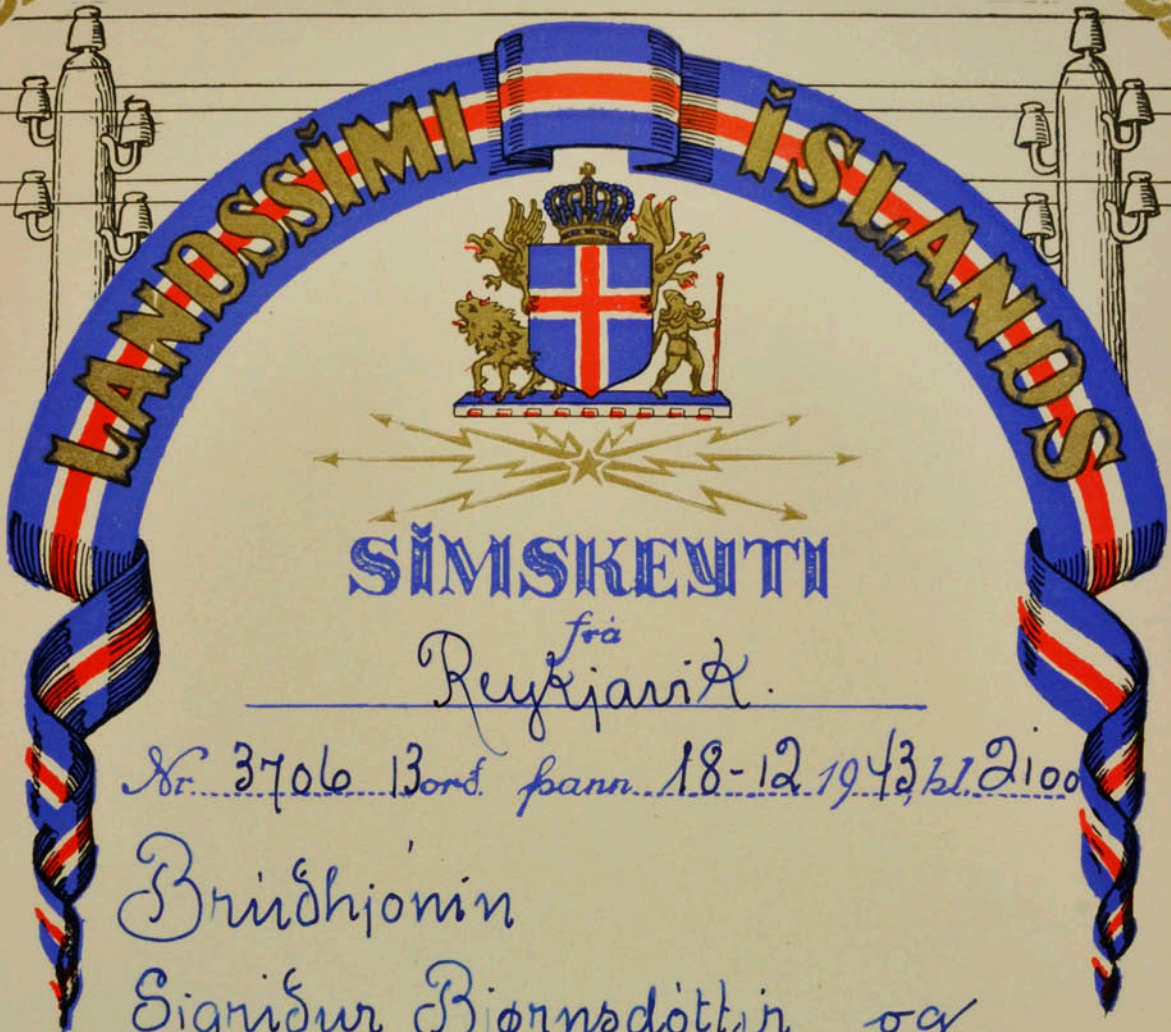 LANDSSÍMI ÍSLANDS
SÍMSKEYTI
frá
Reykjavik.
Nr. 3706 13 orð. þann 18-12 1943, kl. 2100
Brúðhjónin
Sigriður Bjørnsdóttir og